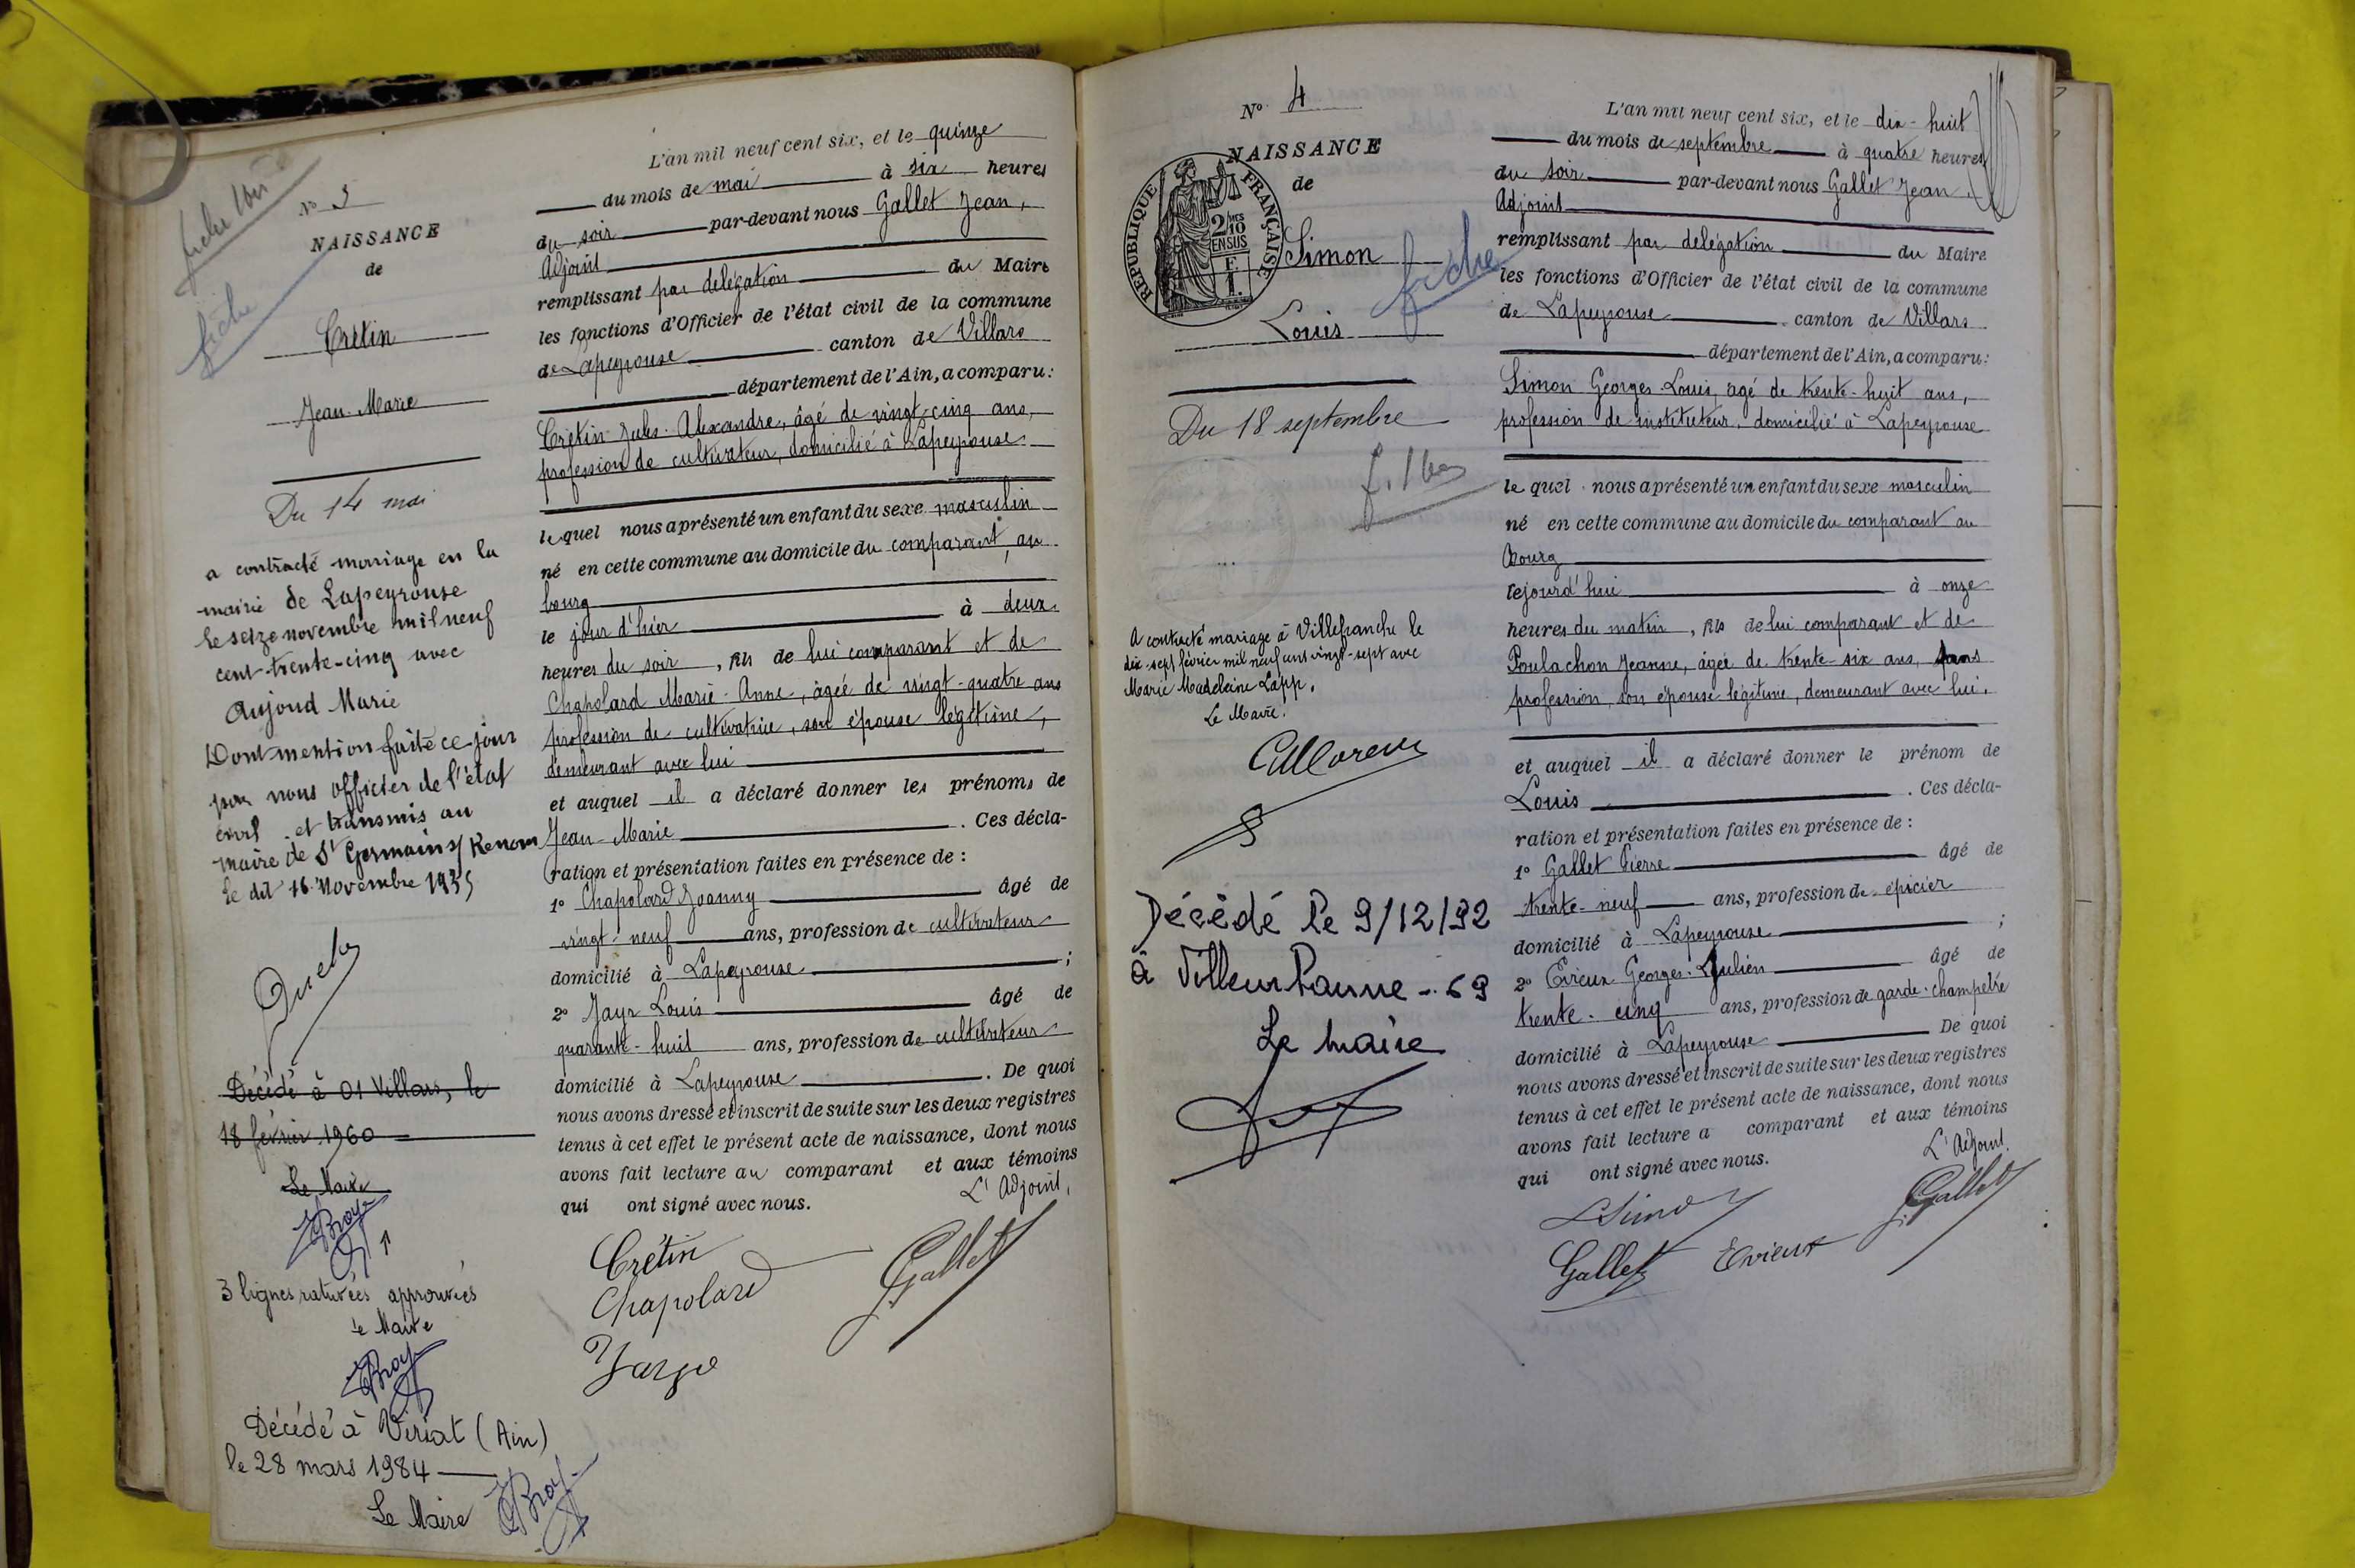 fiche
fiche
N° 3
NAISSANCE
de
Crétin
Jean-Marie
Du 14 mai
a contracté mariage en la
mairie de Lapeyrouse
le seize novembre mil neuf
cent trente-cinq avec
Aujoud Marie
Dont mention faite ce jour
par nous officier de l'état
civil et transmis au
maire de St Germain s/ Renom
le dit 16 Novembre 1935
Décédé à 01 Villars, le
18 février 1960
Le Maire
3 lignes raturées approuvées
le Maire
Décédé à Viriat (Ain)
le 28 mars 1984
Le Maire
L'an mil neuf cent six, et le quinze
du mois de mai à six heures
du soir par-devant nous Gallet Jean,
Adjoint
remplissant par délégation du Maire
les fonctions d'Officier de l'état civil de la commune
de Lapeyrouse canton de Villars
département de l'Ain, a comparu:
Crétin Jules-Alexandre, âgé de vingt-cinq ans,
profession de cultivateur, domicilié à Lapeyrouse
lequel nous a présenté un enfant du sexe masculin
né en cette commune au domicile du comparant, au
bourg
le jour d'hier à deux
heures du soir, fils de lui comparant et de
Chapolard Marie-Anne, âgée de vingt-quatre ans
profession de cultivatrice, son épouse légitime,
demeurant avec lui
et auquel il a déclaré donner les prénoms de
Jean-Marie. Ces décla-
ration et présentation faites en présence de :
1° Chapolard Joanny âgé de
vingt-neuf ans, profession de cultivateur
domicilié à Lapeyrouse ;
2° Jayr Louis âgé de
quarante-huit ans, profession de cultivateur
domicilié à Lapeyrouse. De quoi
nous avons dressé et inscrit de suite sur les deux registres
tenus à cet effet le présent acte de naissance, dont nous
avons fait lecture au comparant et aux témoins
qui ont signé avec nous. L'Adjoint,
Crétin
Chapolard
J. Gallet
N° 4
NAISSANCE
de
REPUBLIQUE FRANÇAISE
2/10 EN SUS
F. 1.
Simon
fiche
Louis
Du 18 septembre
A contracté mariage à Villefranche le
dix-sept février mil neuf cent vingt-sept avec
Marie Madeleine Lapp.
Le Maire.
Décédé le 9/12/92
à Villeurbanne - 69
Le maire
L'an mil neuf cent six, et le dix-huit
du mois de septembre à quatre heures
du soir par-devant nous Gallet Jean,
Adjoint
remplissant par délégation du Maire
les fonctions d'Officier de l'état civil de la commune
de Lapeyrouse canton de Villars
département de l'Ain, a comparu:
Simon Georges-Louis, âgé de trente-huit ans,
profession de instituteur, domicilié à Lapeyrouse
lequel nous a présenté un enfant du sexe masculin
né en cette commune au domicile du comparant au
bourg
cejourd'hui à onze
heures du matin, fils de lui comparant et de
Poulachon Jeanne, âgée de trente-six ans, sans
profession, son épouse légitime, demeurant avec lui.
et auquel il a déclaré donner le prénom de
Louis. Ces décla-
ration et présentation faites en présence de :
1° Gallet Pierre âgé de
trente-neuf ans, profession de épicier
domicilié à Lapeyrouse ;
2° Evieux Georges-Julien âgé de
trente-cinq ans, profession de garde-champêtre
domicilié à Lapeyrouse De quoi
nous avons dressé et inscrit de suite sur les deux registres
tenus à cet effet le présent acte de naissance, dont nous
avons fait lecture a comparant et aux témoins
qui ont signé avec nous. L'Adjoint.
LSimon
J. Gallet
Gallet Evieux